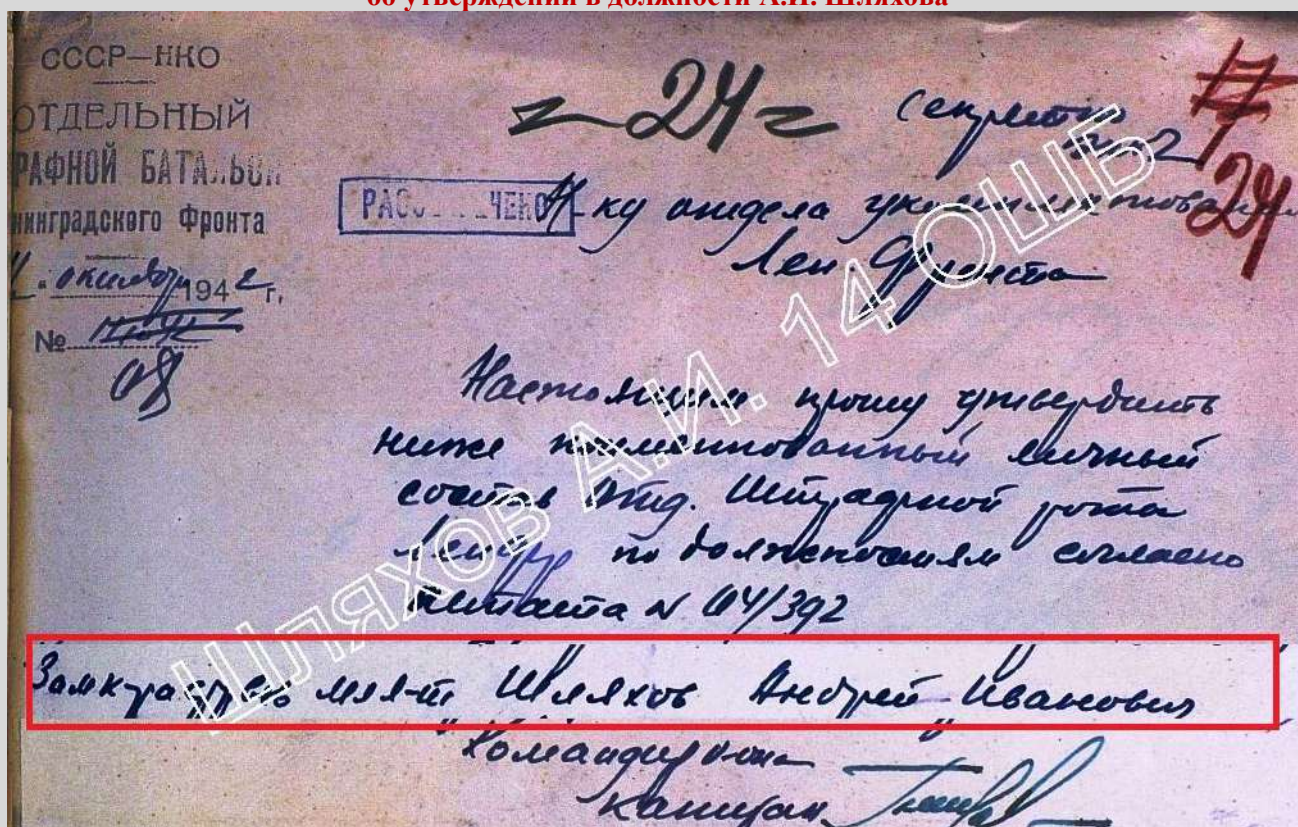 об утверждении в должности А.И. Шляхова
СССР—НКО
ОТДЕЛЬНЫЙ
РАФНОЙ БАТАЛЬОН
нинградского Фронта
октября 1942 г.
№
08
24
Секретно
17
24
РАССЕКРЕЧЕНО
Н-ку отдела укомплектования
Лен. Фронта
Настоящим прошу утвердить
ниже поименованный личный
состав Отд. Штрафной рота
по должностям согласно
штата N 04/392
мл л-т Шляхов Андрей Иванович
Командир
капитан
ШЛЯХОВ А.И. 14 ОШБ